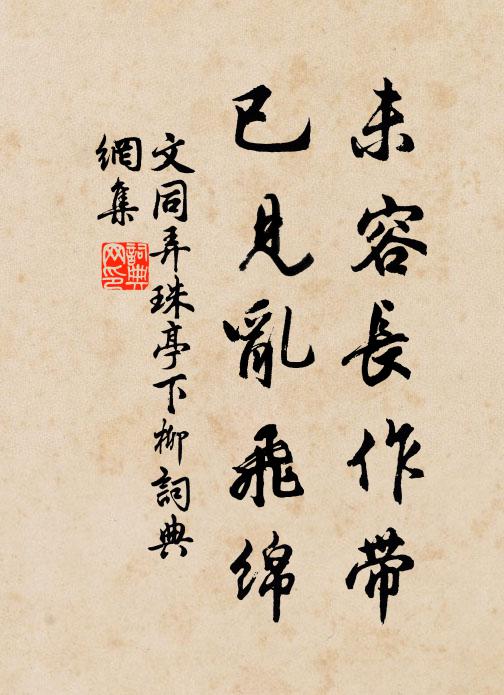 未容長作帶
已見亂飛綿
文同弄珠亭下柳詞典
網集
詞典
网印